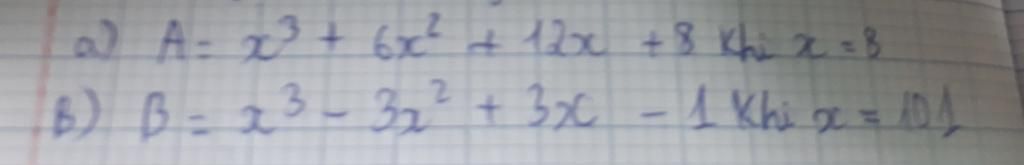 a) A = x³ + 6x² + 12x + 8 khi x = 8
b) B = x³ - 3x² + 3x - 1 khi x = 101